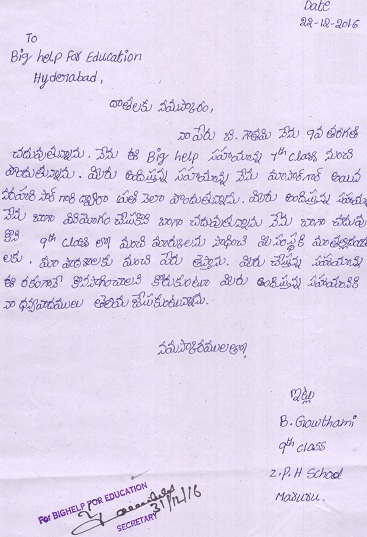 Date
22-12-2016
To
Big help For Education
Hyderabad,
దాతలకు నమస్కారం,
నా పేరు బి. గౌతమి నేను 9వ తరగతి
చదువుతున్నాను. నేను ఈ Big help సహాయాన్ని 7th class నుంచి
పొందుతున్నాను. మీరు అందిస్తున్న సహాయాన్ని నేను మా సార్ గారు అయిన
నరహరి సార్ గారి ద్వారా ప్రతి నెలా పొందుతున్నాను. మీరు అందిస్తున్న సహాయ
నేను బాగా వినియోగం చేసుకొని బాగా చదువుతున్నాను నేను బాగా చదువు
కొని 9th class లో మంచి మార్కులను సాధించి మీ సంస్థకి మా తల్లిదండ్రు
లకు, మా పాఠశాలకు మంచి పేరు తెస్తాను. మీరు చేస్తున్న సహాయాన్ని
ఈ రకంగానే కొనసాగించాలని కోరుకుంటూ మీరు అందిస్తున్న సహాయానికి
నా ధన్యవాదములు తెలియ చేసుకుంటున్నాను.
నమస్కారములతో,
ఇట్లు
B. Gowthami
9th class
Z.P.H School
Maruru.
For BIGHELP FOR EDUCATION
31/12/16
SECRETARY